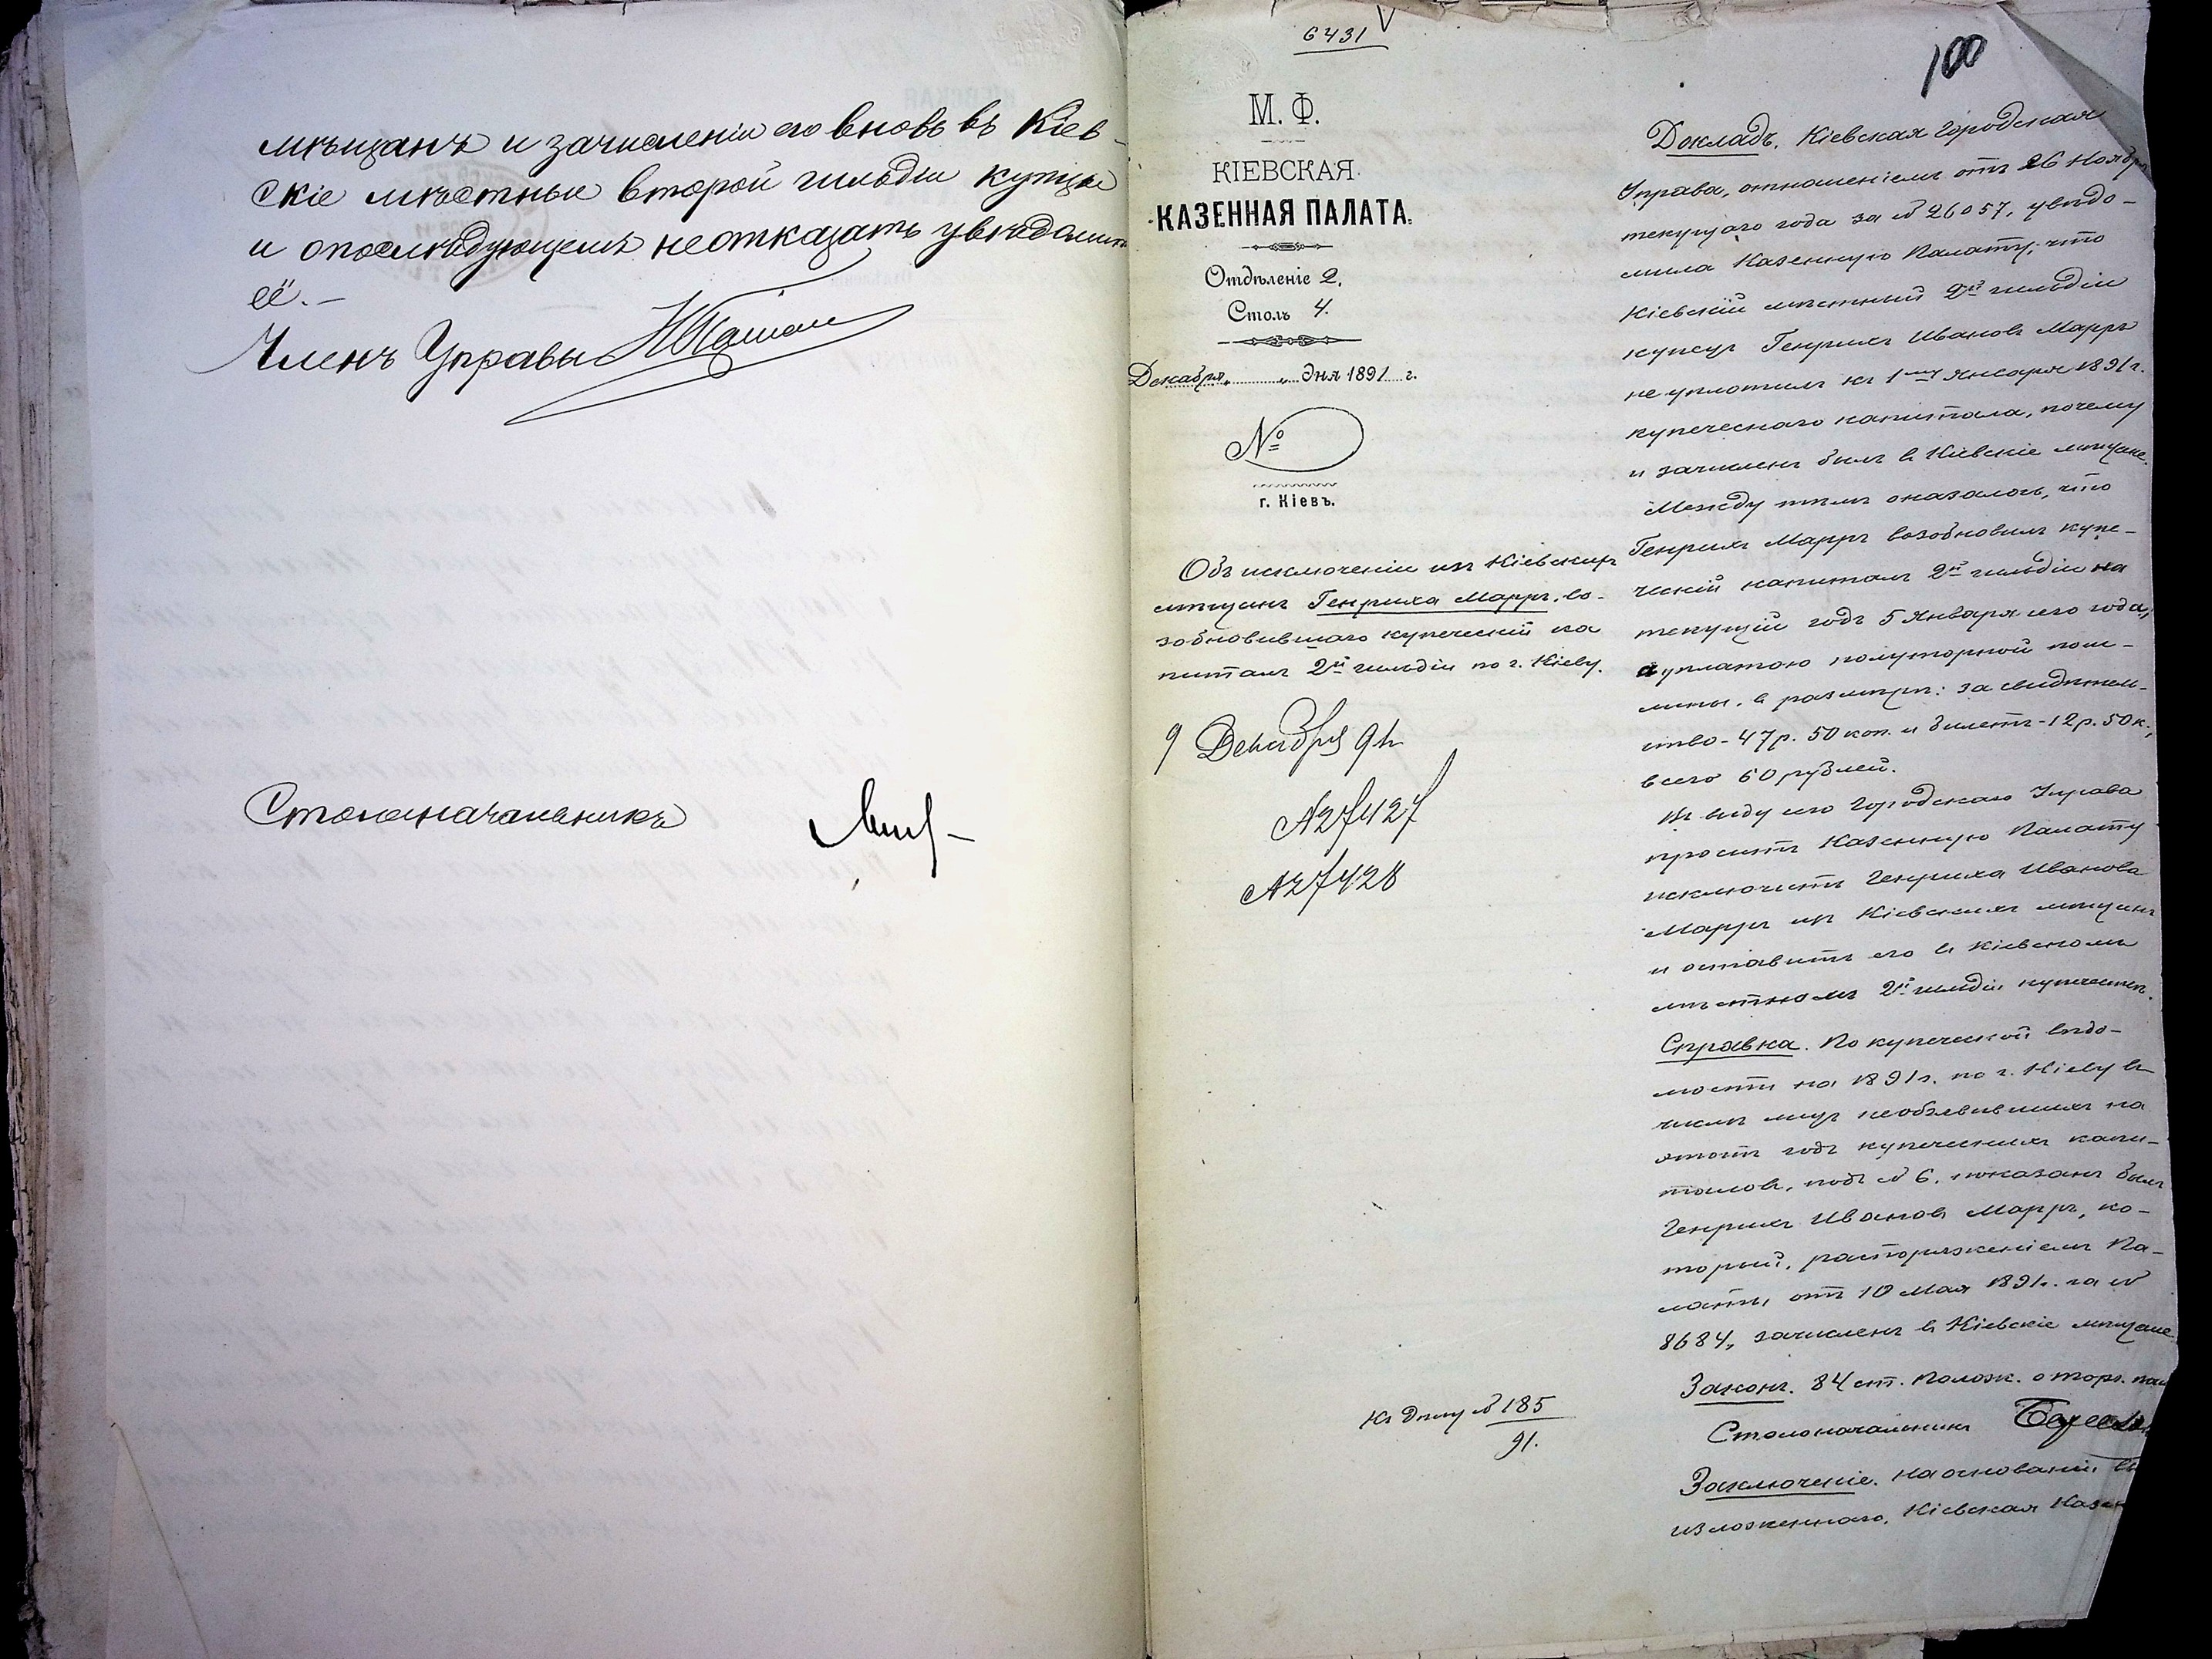 мѣщанъ и зачисленіи его вновь въ Кіев-
скіе мѣстные второй гильдіи купцы
и опослѣдующемъ неотказать увѣдомить
её.-
Членъ Управы
Столоначальникъ
6431
100
М. Ф.
КІЕВСКАЯ
КАЗЕННАЯ ПАЛАТА.
Отдѣленіе 2.
Столъ 4.
Декабря „ „ дня 1891 г.
№
г. Кіевъ.
Объ исключеніи изъ Кіевскихъ
мѣщанъ Генриха Марръ, во-
зобновившаго купеческій ка
питалъ 2й гильдіи по г. Кіеву.
9 Декабря 91
№27427
№27428
Къ дѣлу № 185
91.
Докладъ. Кіевская Городская
Управа, отношеніемъ отъ 26 Ноября
текущаго года за № 26057, увѣдо-
мила Казенную Палату, что
Кіевскій мѣстный 2й гильдіи
купецъ Генрихъ Ивановъ Марръ
не уплотилъ къ 1му Января 1891 г.
купеческаго капитала, почему
и зачисленъ былъ въ Кіевскіе мѣщане.
Между тѣмъ оказалось, что
Генрихъ Марръ возобновилъ купе-
ческій капиталъ 2й гильдіи на
текущій годъ 5 Января сего года,
уплатою полуторной пош-
лины, въ размѣрѣ: за свидѣтель-
ство-47р. 50 коп. и билетъ-12р. 50к.,
всего 60 рублей.
Въ виду сего Городская Управа
проситъ Казенную Палату
исключить Генриха Иванова
Марръ изъ Кіевскихъ мѣщанъ
и оставить его въ Кіевскомъ
мѣстномъ 2й гильдіи купечествѣ.
Справка. По купеческой вѣдо-
мости на 1891 г. по г. Кіеву въ
числѣ лицъ необъявившихъ на
этотъ годъ купеческихъ капи-
таловъ, подъ № 6, показанъ былъ
Генрихъ Ивановъ Марръ, ко-
торый, распоряженіемъ Па-
латы отъ 10 Мая 1891 г. за №
8684, зачисленъ въ Кіевскіе мѣщане
Законъ. 84 ст. Полож. о торг.
Столоначальникъ
Заключеніе. На основаніи
изложеннаго, Кіевская Казен